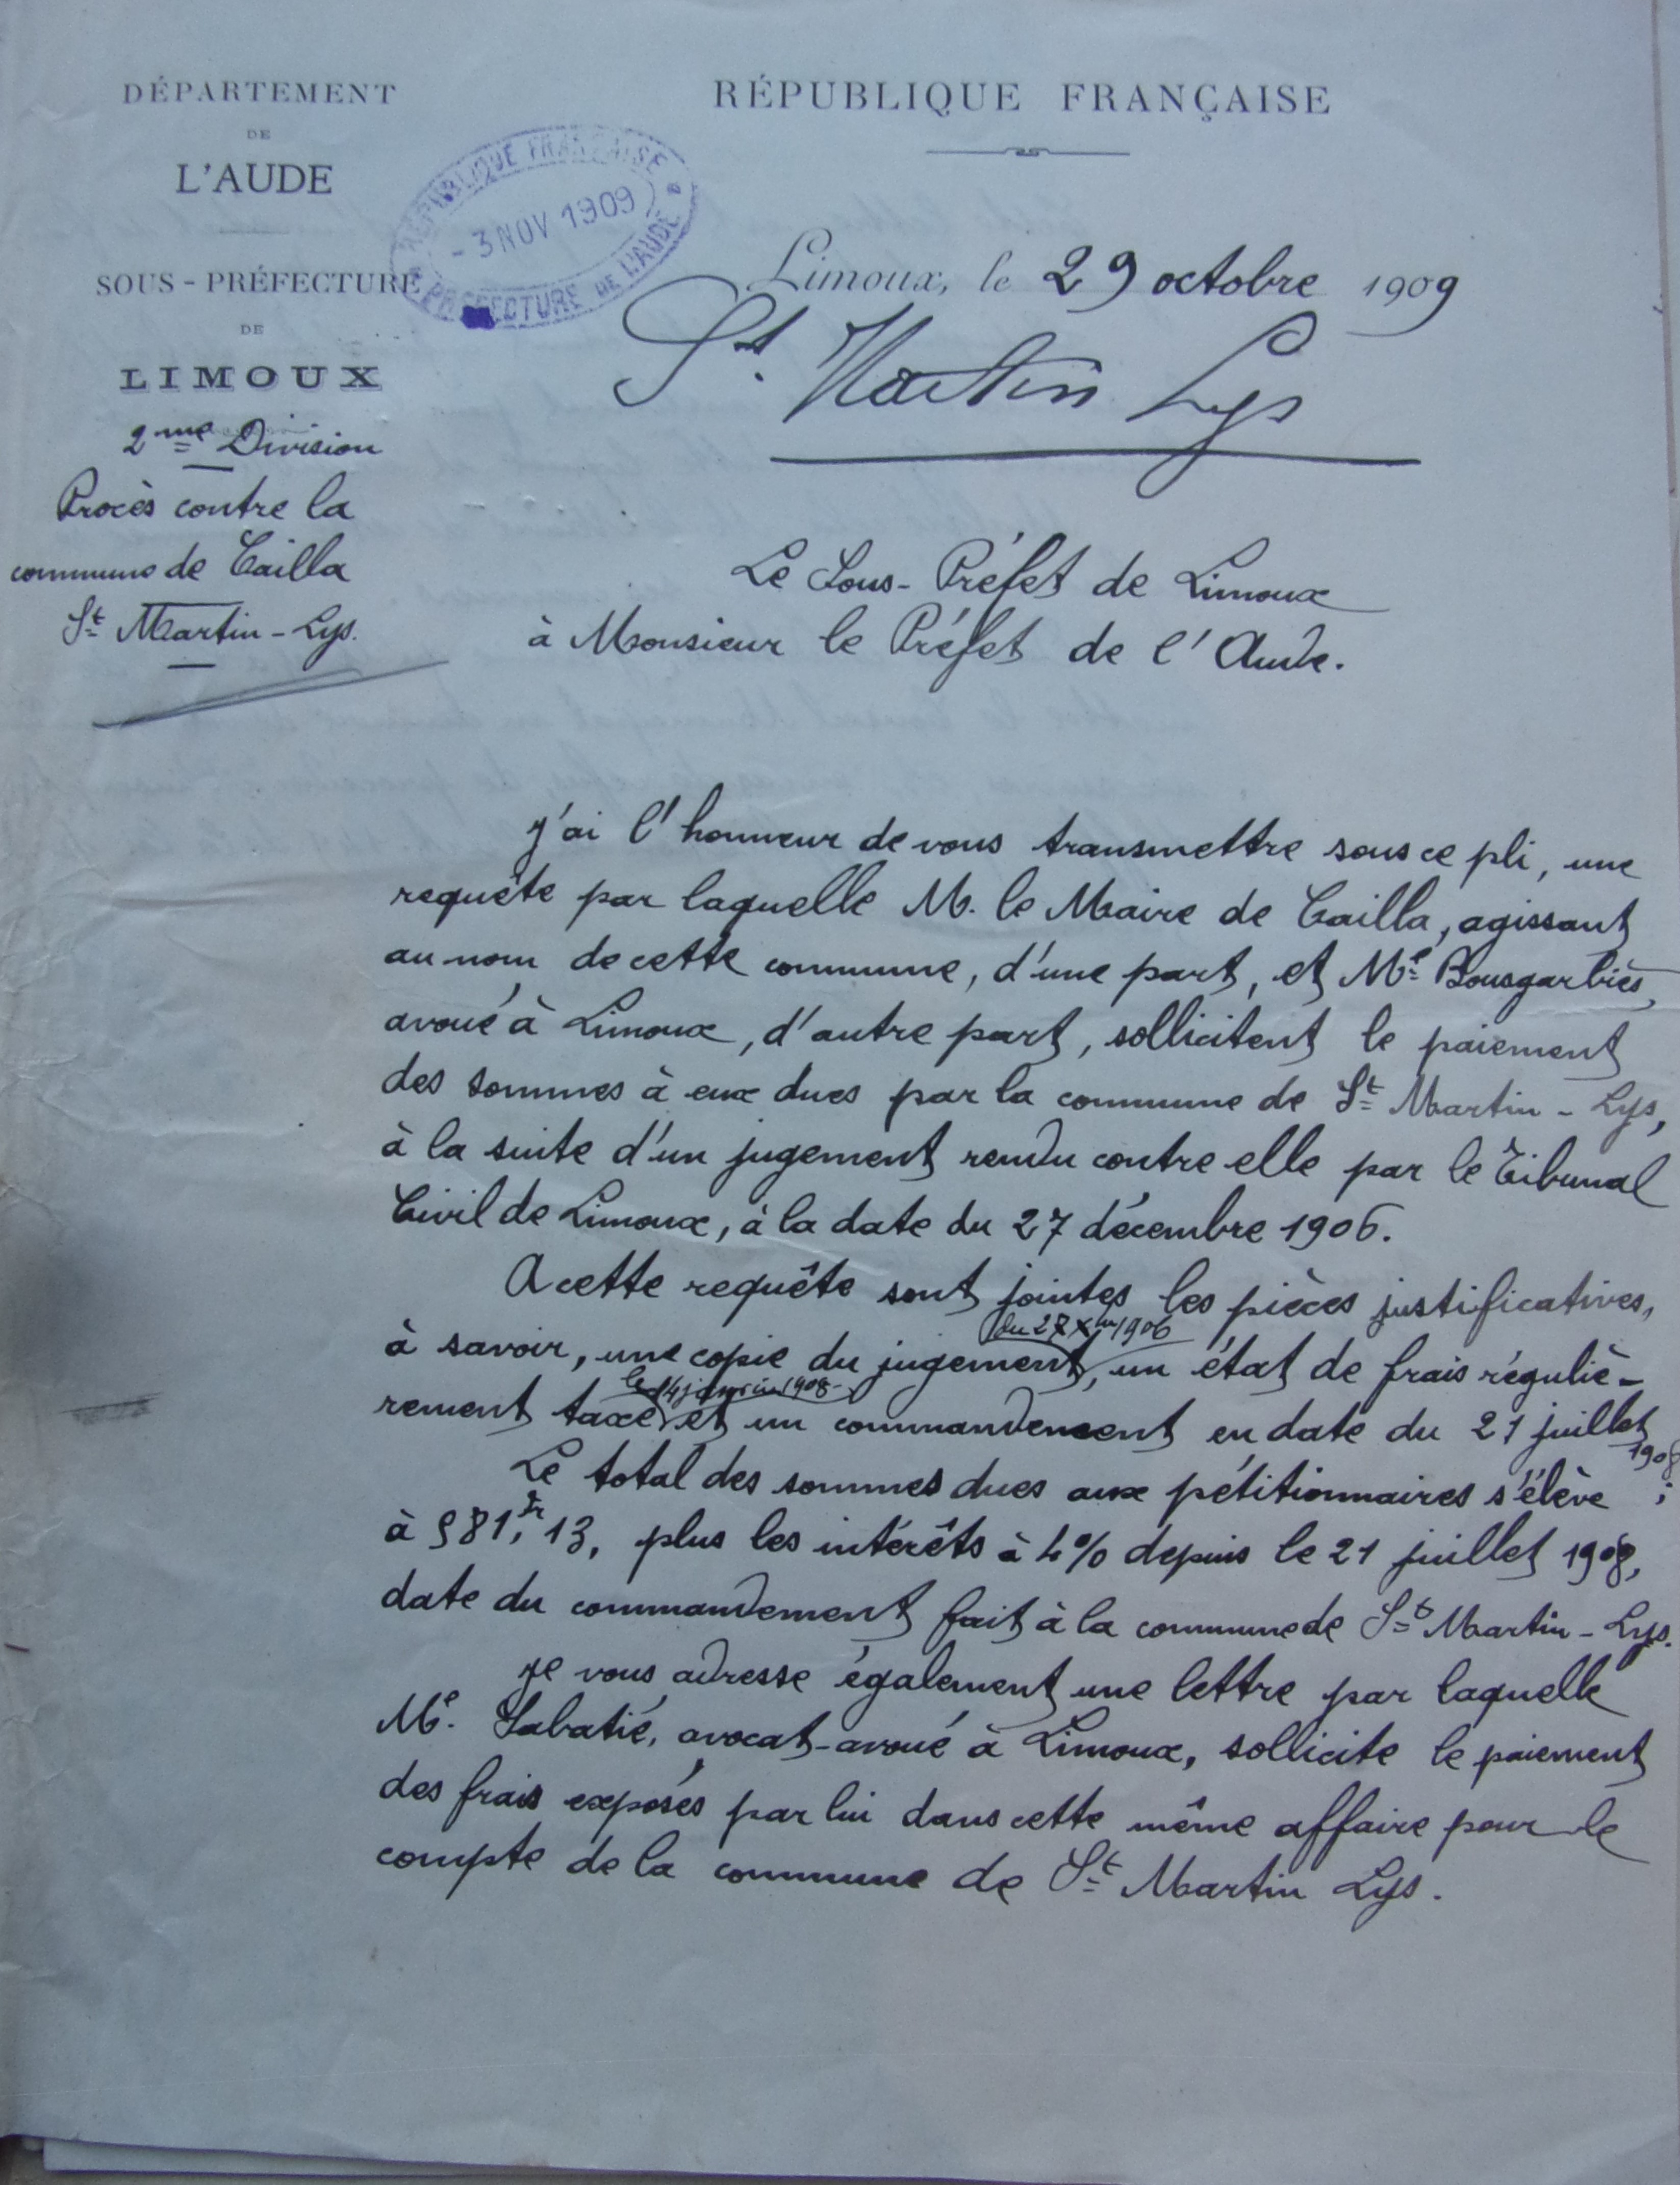 DÉPARTEMENT
DE
L'AUDE
SOUS-PRÉFECTURE
DE
LIMOUX
2me Division
Procès contre la
commune de Cailla
St Martin-Lys.
RÉPUBLIQUE FRANÇAISE
RÉPUBLIQUE FRANÇAISE
- 3 NOV 1909
PRÉFECTURE DE L'AUDE
Limoux, le 29 octobre 1909
St. Martin Lys
Le Sous-Préfet de Limoux
à Monsieur le Préfet de l'Aude.
J'ai l'honneur de vous transmettre sous ce pli, une
requête par laquelle M. le Maire de Cailla, agissant
au nom de cette commune, d'une part, et Me Bousgarbiès,
avoué à Limoux, d'autre part, sollicitent le paiement
des sommes à eux dues par la commune de St Martin-Lys,
à la suite d'un jugement rendu contre elle par le Tribunal
Civil de Limoux, à la date du 27 décembre 1906.
A cette requête sont jointes les pièces justificatives,
du 27 Xbre 1906
à savoir, une copie du jugement, un état de frais réguliè-
le 14 janvier 1908
rement taxé et un commandement en date du 21 juillet
1908
Le total des sommes dues aux pétitionnaires s'élève ;
à 981,fr 13, plus les intérêts à 4% depuis le 21 juillet 1908,
date du commandement fait à la commune de St Martin-Lys.
Je vous adresse également une lettre par laquelle
Me. Sabatié, avocat-avoué à Limoux, sollicite le paiement
des frais exposés par lui dans cette même affaire pour le
compte de la commune de St Martin Lys.